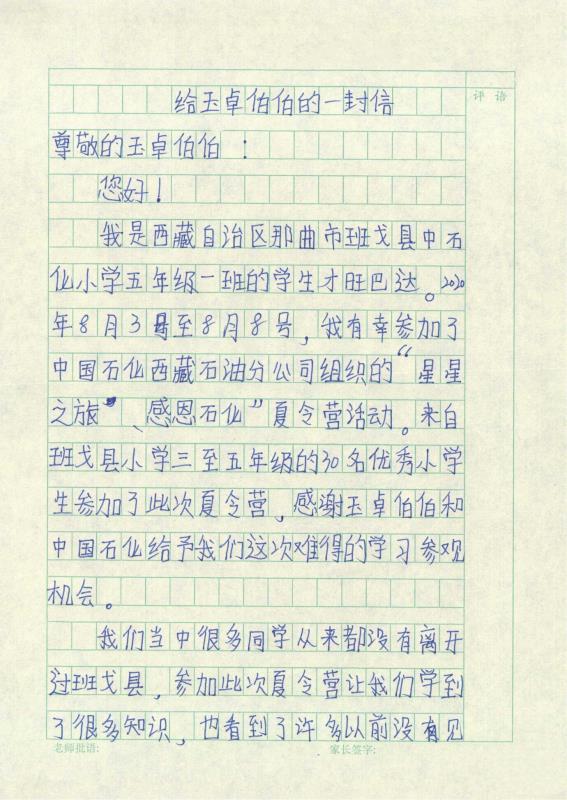 给玉卓伯伯的一封信
评语
尊敬的玉卓伯伯：
您好！
我是西藏自治区那曲市班戈县中石
化小学五年级一班的学生才旺巴达。2020
年8月3号至8月8号，我有幸参加了
中国石化西藏石油分公司组织的“星星
之旅”、感恩石化”夏令营活动。来自
班戈县小学三至五年级的30名优秀小学
生参加了此次夏令营，感谢玉卓伯伯和
中国石化给予我们这次难得的学习参观
机会。
我们当中很多同学从来都没有离开
过班戈县，参加此次夏令营让我们学到
了很多知识，也看到了许多以前没有见
老师批语: 家长签字: